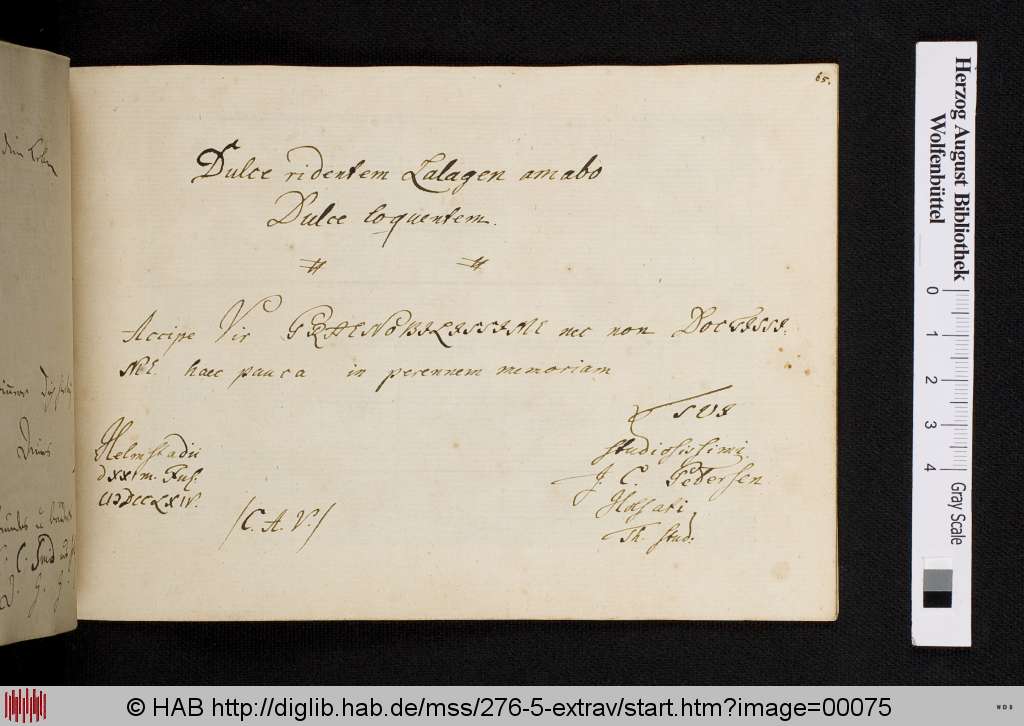 65.
Dulce ridentem Lalagen amabo
Dulce loquentem.
Accipe Vir PRAENOBILISSIME nec non DOCTISSI-
ME haec pauca in perennem memoriam
Helmstadii
d XXI m.
CIƆDCCLXIV.
(C. A. V.)
TUI
studiosissimi
J. C. Petersen
Holsati
Th. stud:
Herzog August Bibliothek
Wolfenbüttel
0 1 2 3 4
Gray Scale
© HAB http://diglib.hab.de/mss/276-5-extrav/start.htm?image=00075